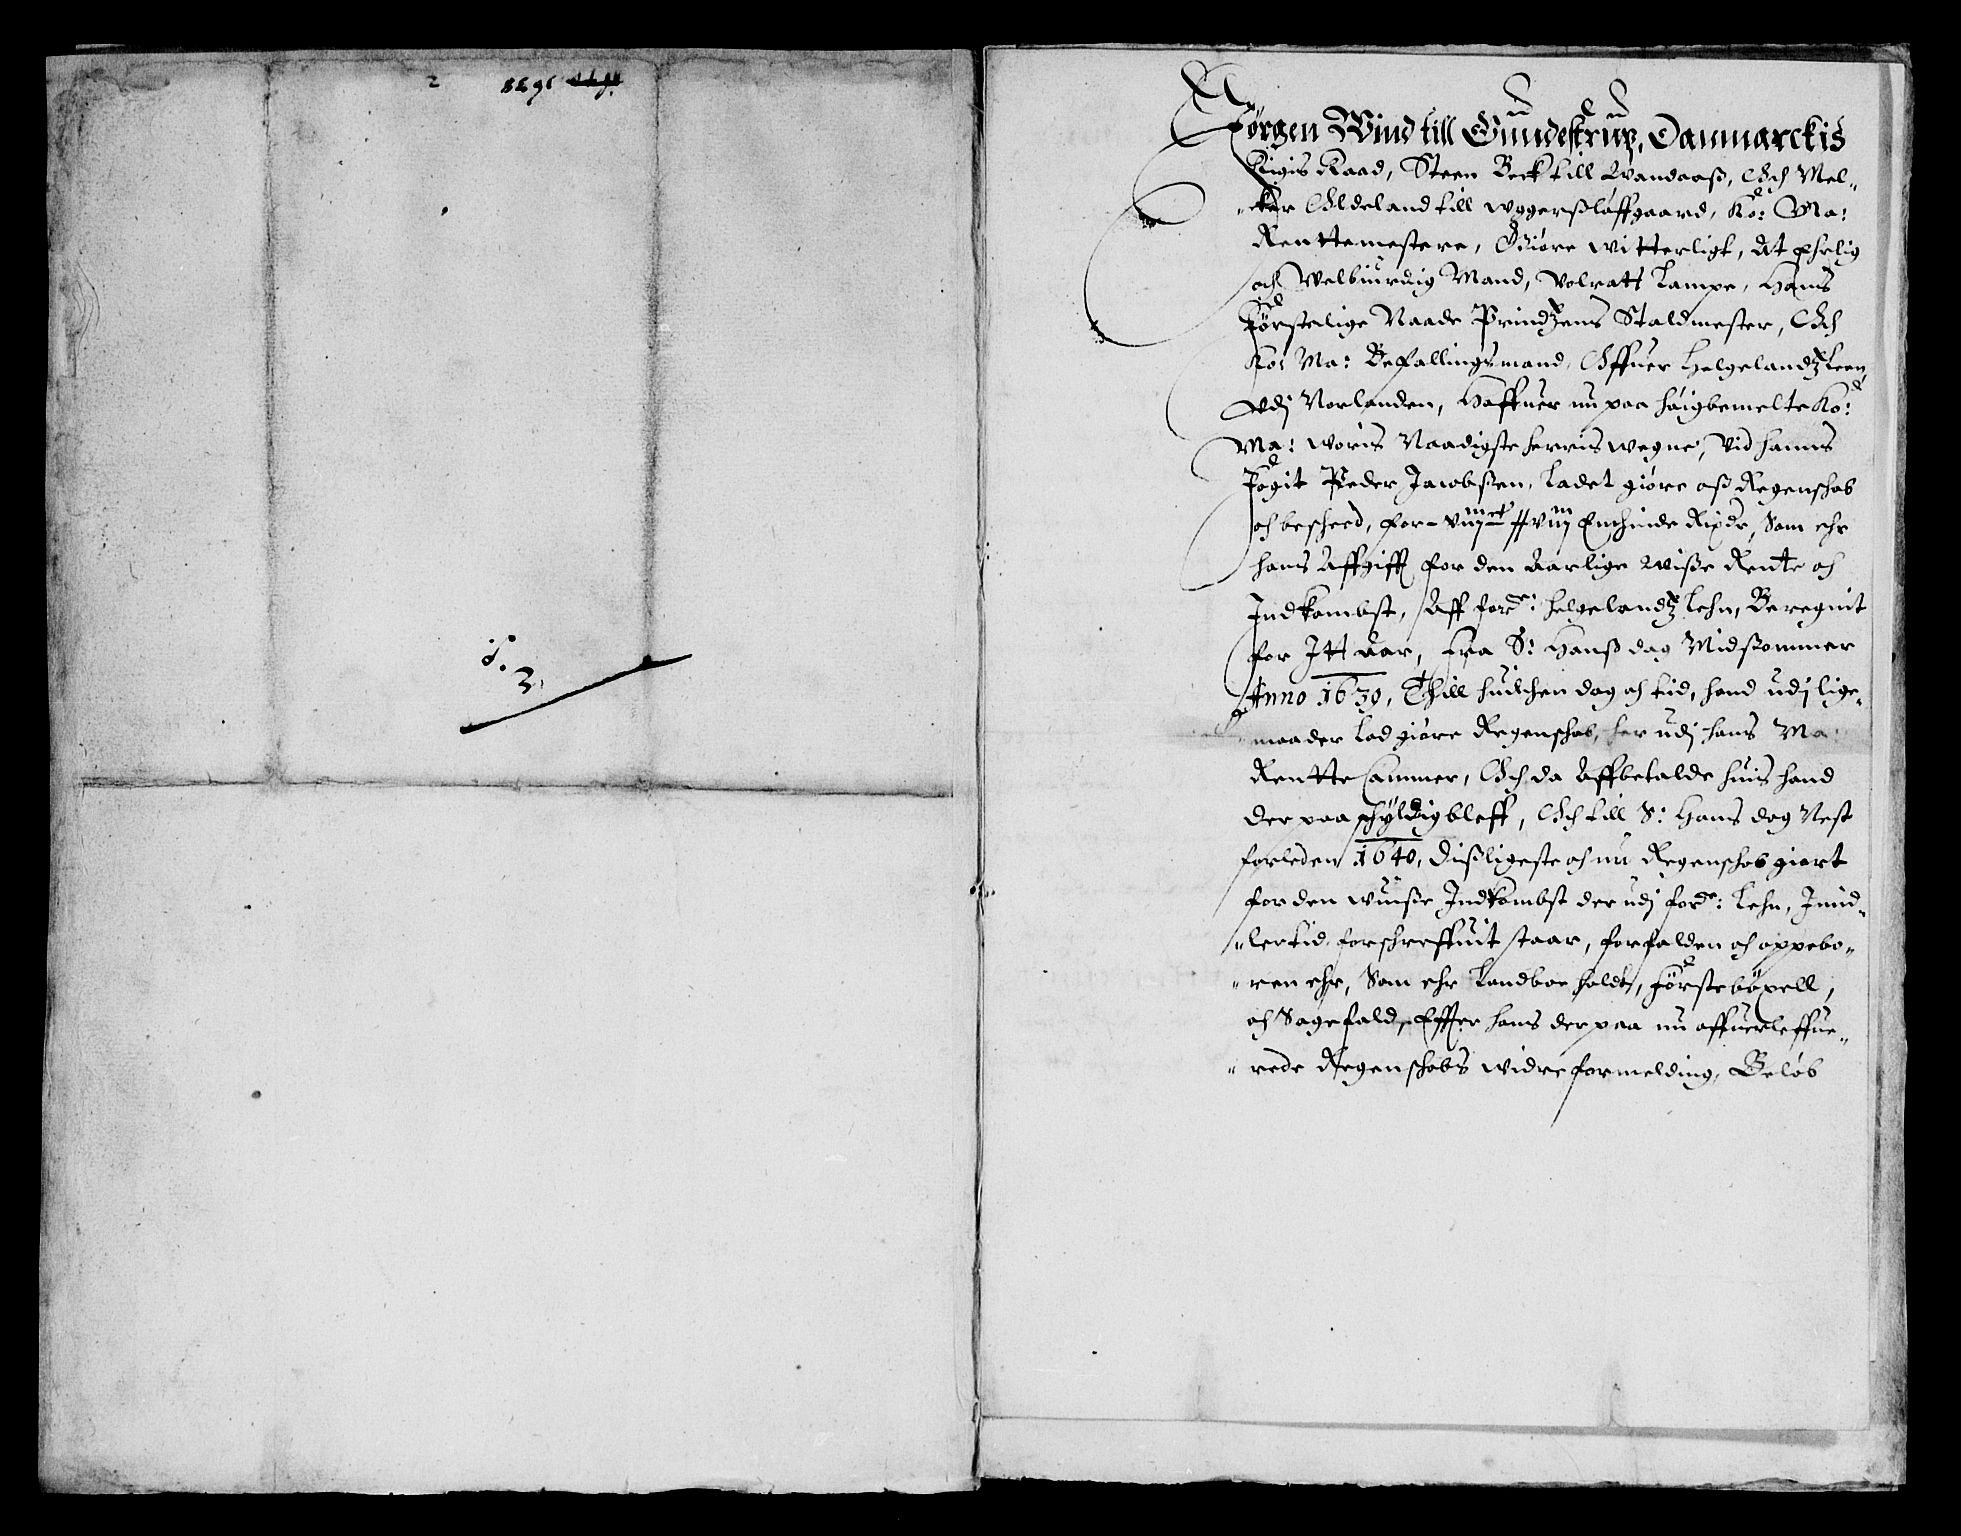 1638
2
3.
Jørgen Wind till Gundestrup, Danmarckis
Rigis Raad, Steen Beck till Wandaaß, Och Mel„
„ker Oldeland till Wggerßløffgaard, Ko: Ma:
Renttemestere, Giøre witterligt, At Ehrlig
och Welbiurdig Mand, Volratt Lampe, Hans
Førstelige Naade Printzens Staldmester, Och
Ko: Ma: Befallingsmand, Offuer Helgelandtz Leen,
Vdj Norlanden, Haffuer nu paa høigbemelte Ko:
Ma: woris Naadigste herris wegne, Vid hanns
Fogit Peder Jacobßen, Ladet giøre oß Regenschab
och bescheed, for Enchinde Rixdr, Som ehr
hans Affgifft for den Aarlige Wiße Rente och
Indkombst, Aff forde: Helgelandtz Lehn, Beregnit
for Itt Aar, fra S: Hanß dag Midßommer
Anno 1639, Thill huilchen dag och tid, hand udj lige„
„maader lod giøre Regenschab, her udj hans Ma:
Rentte Cammer, Och da Affbetalde huis hand
der paa schyldig bleff, Och till S: Hans dag Nest
forleden 1640, dißligeste och nu Regenschab giort
for den wuiße Indkombst der udj forde: Lehn, Imid„
„lertid forschreffuit staar, forfalden och oppebo„
„ren ehr, Som ehr Landboe holdt, Førstebøxell,
och Sagefald, Effter hans der paa nu offuerleffue„
„rede Regenschabs widre formelding, Beløb